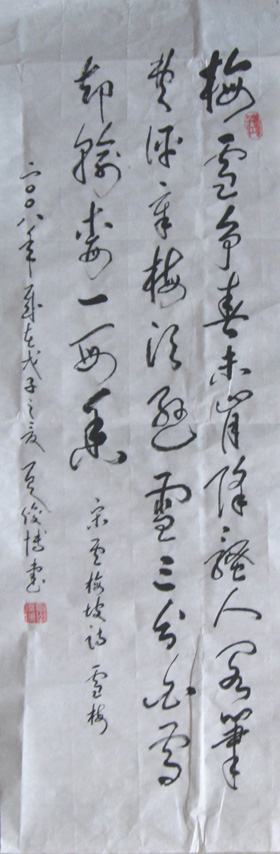 梅雪争春未肯降騷人阁筆
費評章梅須遜雪三分白雪
却輸梅一段香
宋卢梅坡诗 雪梅
二〇〇八年歲在戊子之夏 俊博書